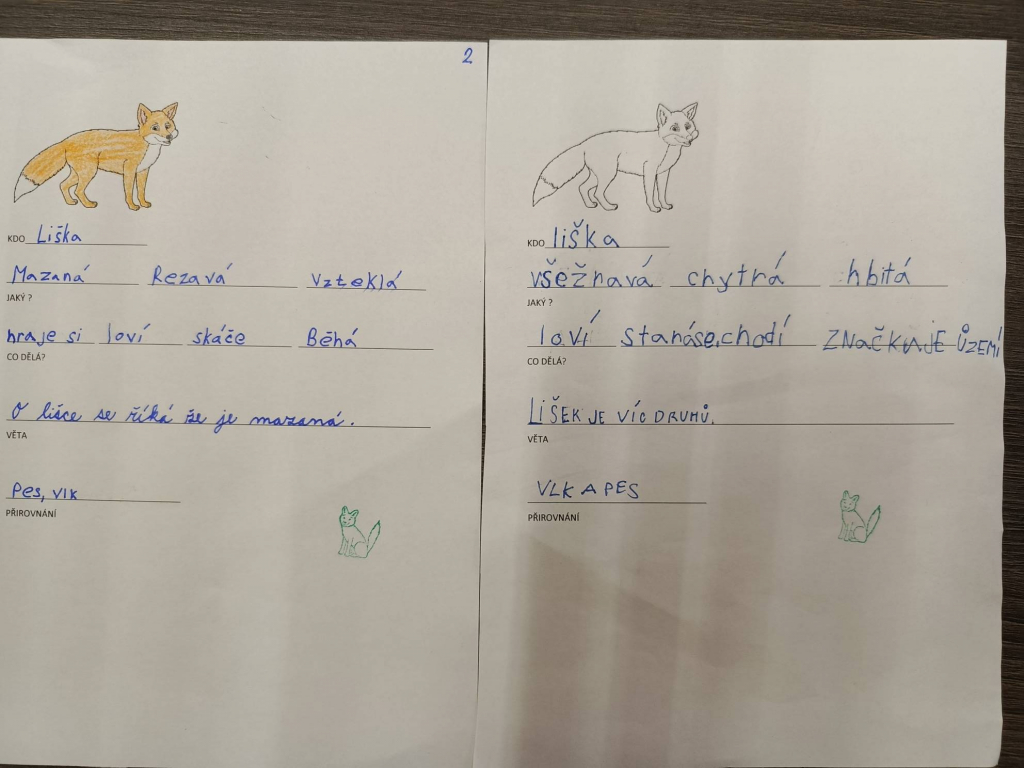 2
KDO Liška
Mazaná Rezavá Vzteklá
JAKÝ ?
hraje si loví skáče Běhá
CO DĚLÁ?
O lišce se říká že je mazaná.
VĚTA
Pes, vlk
PŘIROVNÁNÍ
KDO liška
všežravá chytrá hbitá
JAKÝ ?
loví staráse,chodí ZNAČKUJE ŮZEMÍ
CO DĚLÁ?
LIŠEK JE VÍC DRUHŮ.
VĚTA
VLK A PES
PŘIROVNÁNÍ